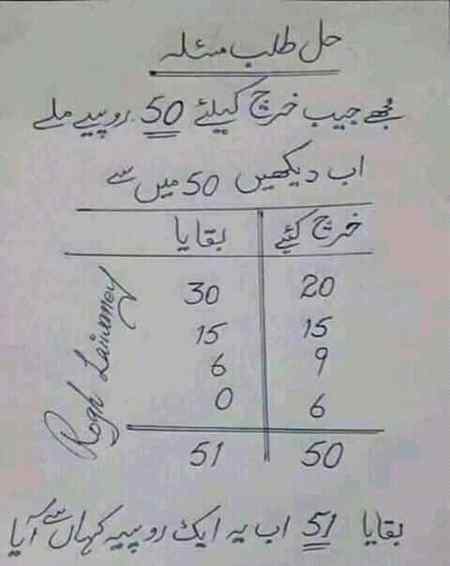 حل طلب مسئلہ
مجھے جیب خرچ کیلئے 50 روپیے ملے
اب دیکھیں 50 میں سے
خرچ کئیے بقایا
20 30
15 15
9 6
6 0
50 51
بقایا 51 اب یہ ایک روپیہ کہاں سے آیا